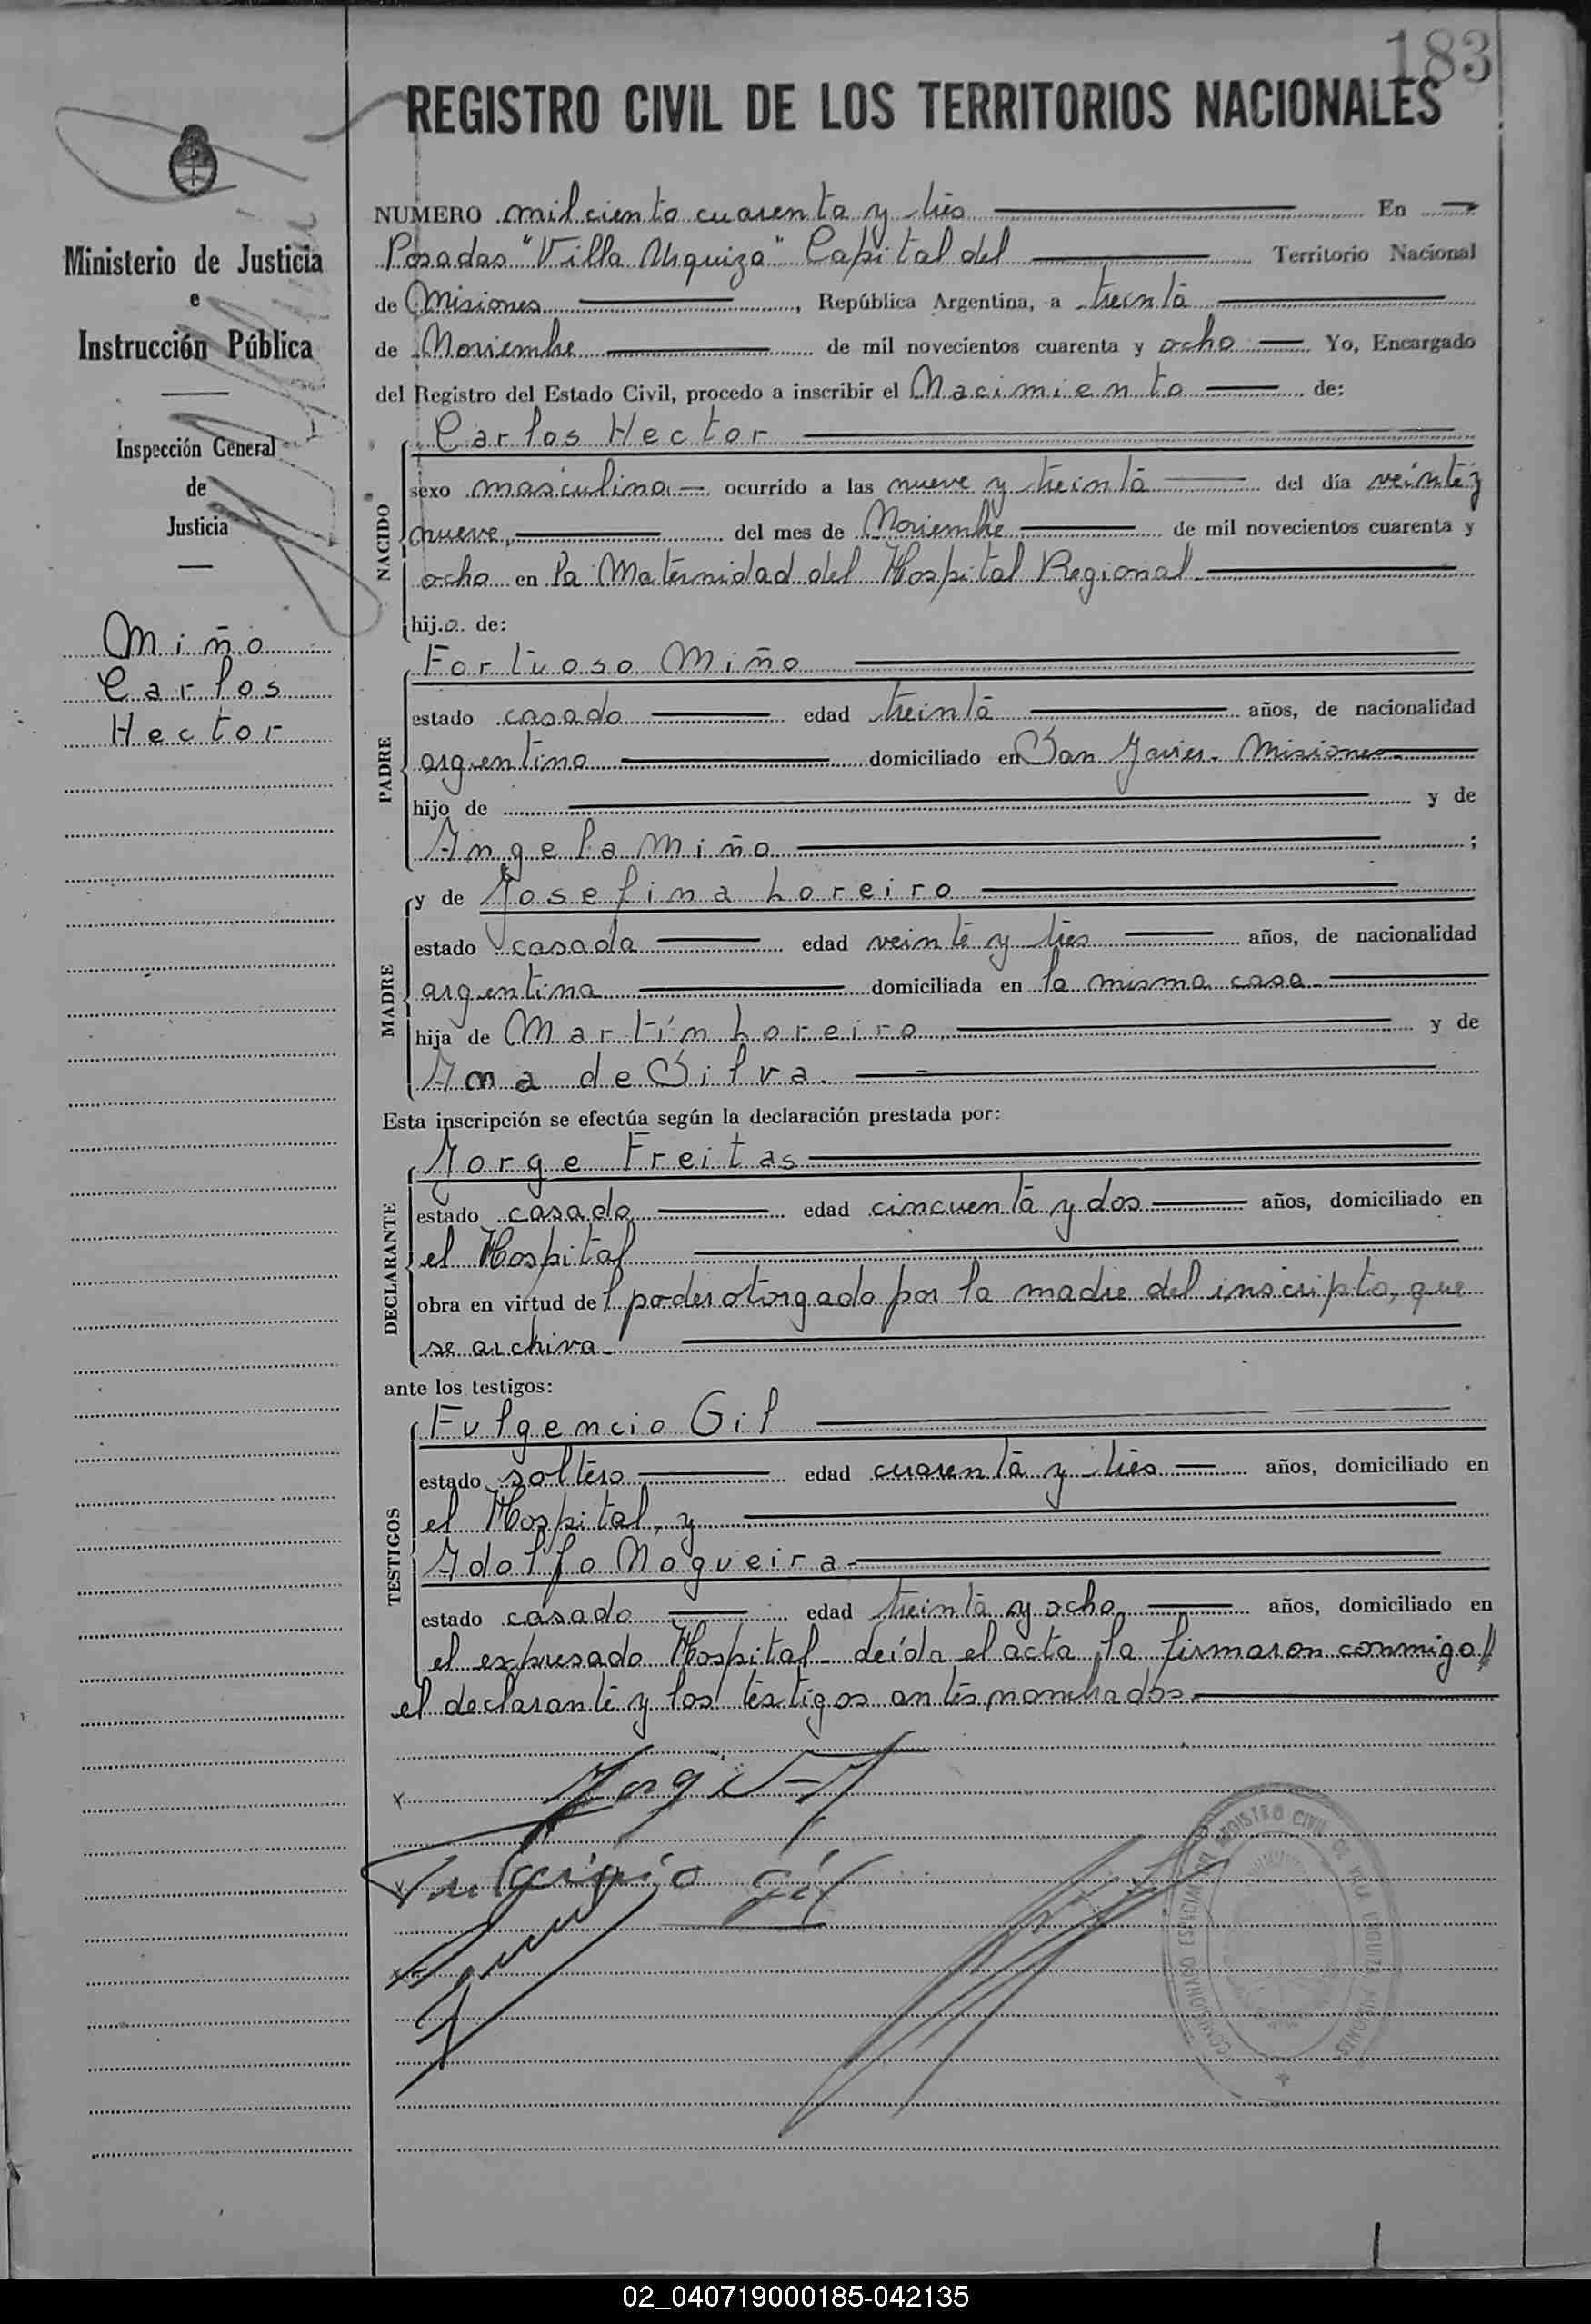 183
REGISTRO CIVIL DE LOS TERRITORIOS NACIONALES
Ministerio de Justicia
e
Instrucción Pública
Inspección General
de
Justicia
Miño
Carlos
Hector
NUMERO mil ciento cuarenta y tres En
Posadas "Villa Urquiza" Capital del Territorio Nacional
de Misiones, República Argentina, a treinta
de Noviembre de mil novecientos cuarenta y ocho Yo, Encargado
del Registro del Estado Civil, procedo a inscribir el Nacimiento de:
NACIDO
Carlos Hector
sexo masculino ocurrido a las nueve y treinta del día veinte y
nueve, del mes de Noviembre de mil novecientos cuarenta y
ocho en la Maternidad del Hospital Regional
hijo de:
PADRE
Fortuoso Miño
estado casado edad treinta años, de nacionalidad
argentino domiciliado en San Javier - Misiones
hijo de y de
Angela Miño ;
MADRE
y de Josefina Loreiro
estado casada edad veinte y tres años, de nacionalidad
argentina domiciliada en la misma casa
hija de Martín Loreiro y de
Ana de Silva.
Esta inscripción se efectúa según la declaración prestada por:
DECLARANTE
Jorge Freitas
estado casado edad cincuenta y dos años, domiciliado en
el Hospital
obra en virtud del poder otorgado por la madre del inscripto, que
se archiva.
ante los testigos:
TESTIGOS
Fulgencio Gil
estado soltero edad cuarenta y tres años, domiciliado en
el Hospital, y
Adolfo Nogueira
estado casado edad treinta y ocho años, domiciliado en
el expresado Hospital - Leída el acta la firmaron conmigo //
el declarante y los testigos antes nombrados
Fulgencio Gil
REGISTRO CIVIL DE VILLA URQUIZA MISIONES
02_040719000185-042135